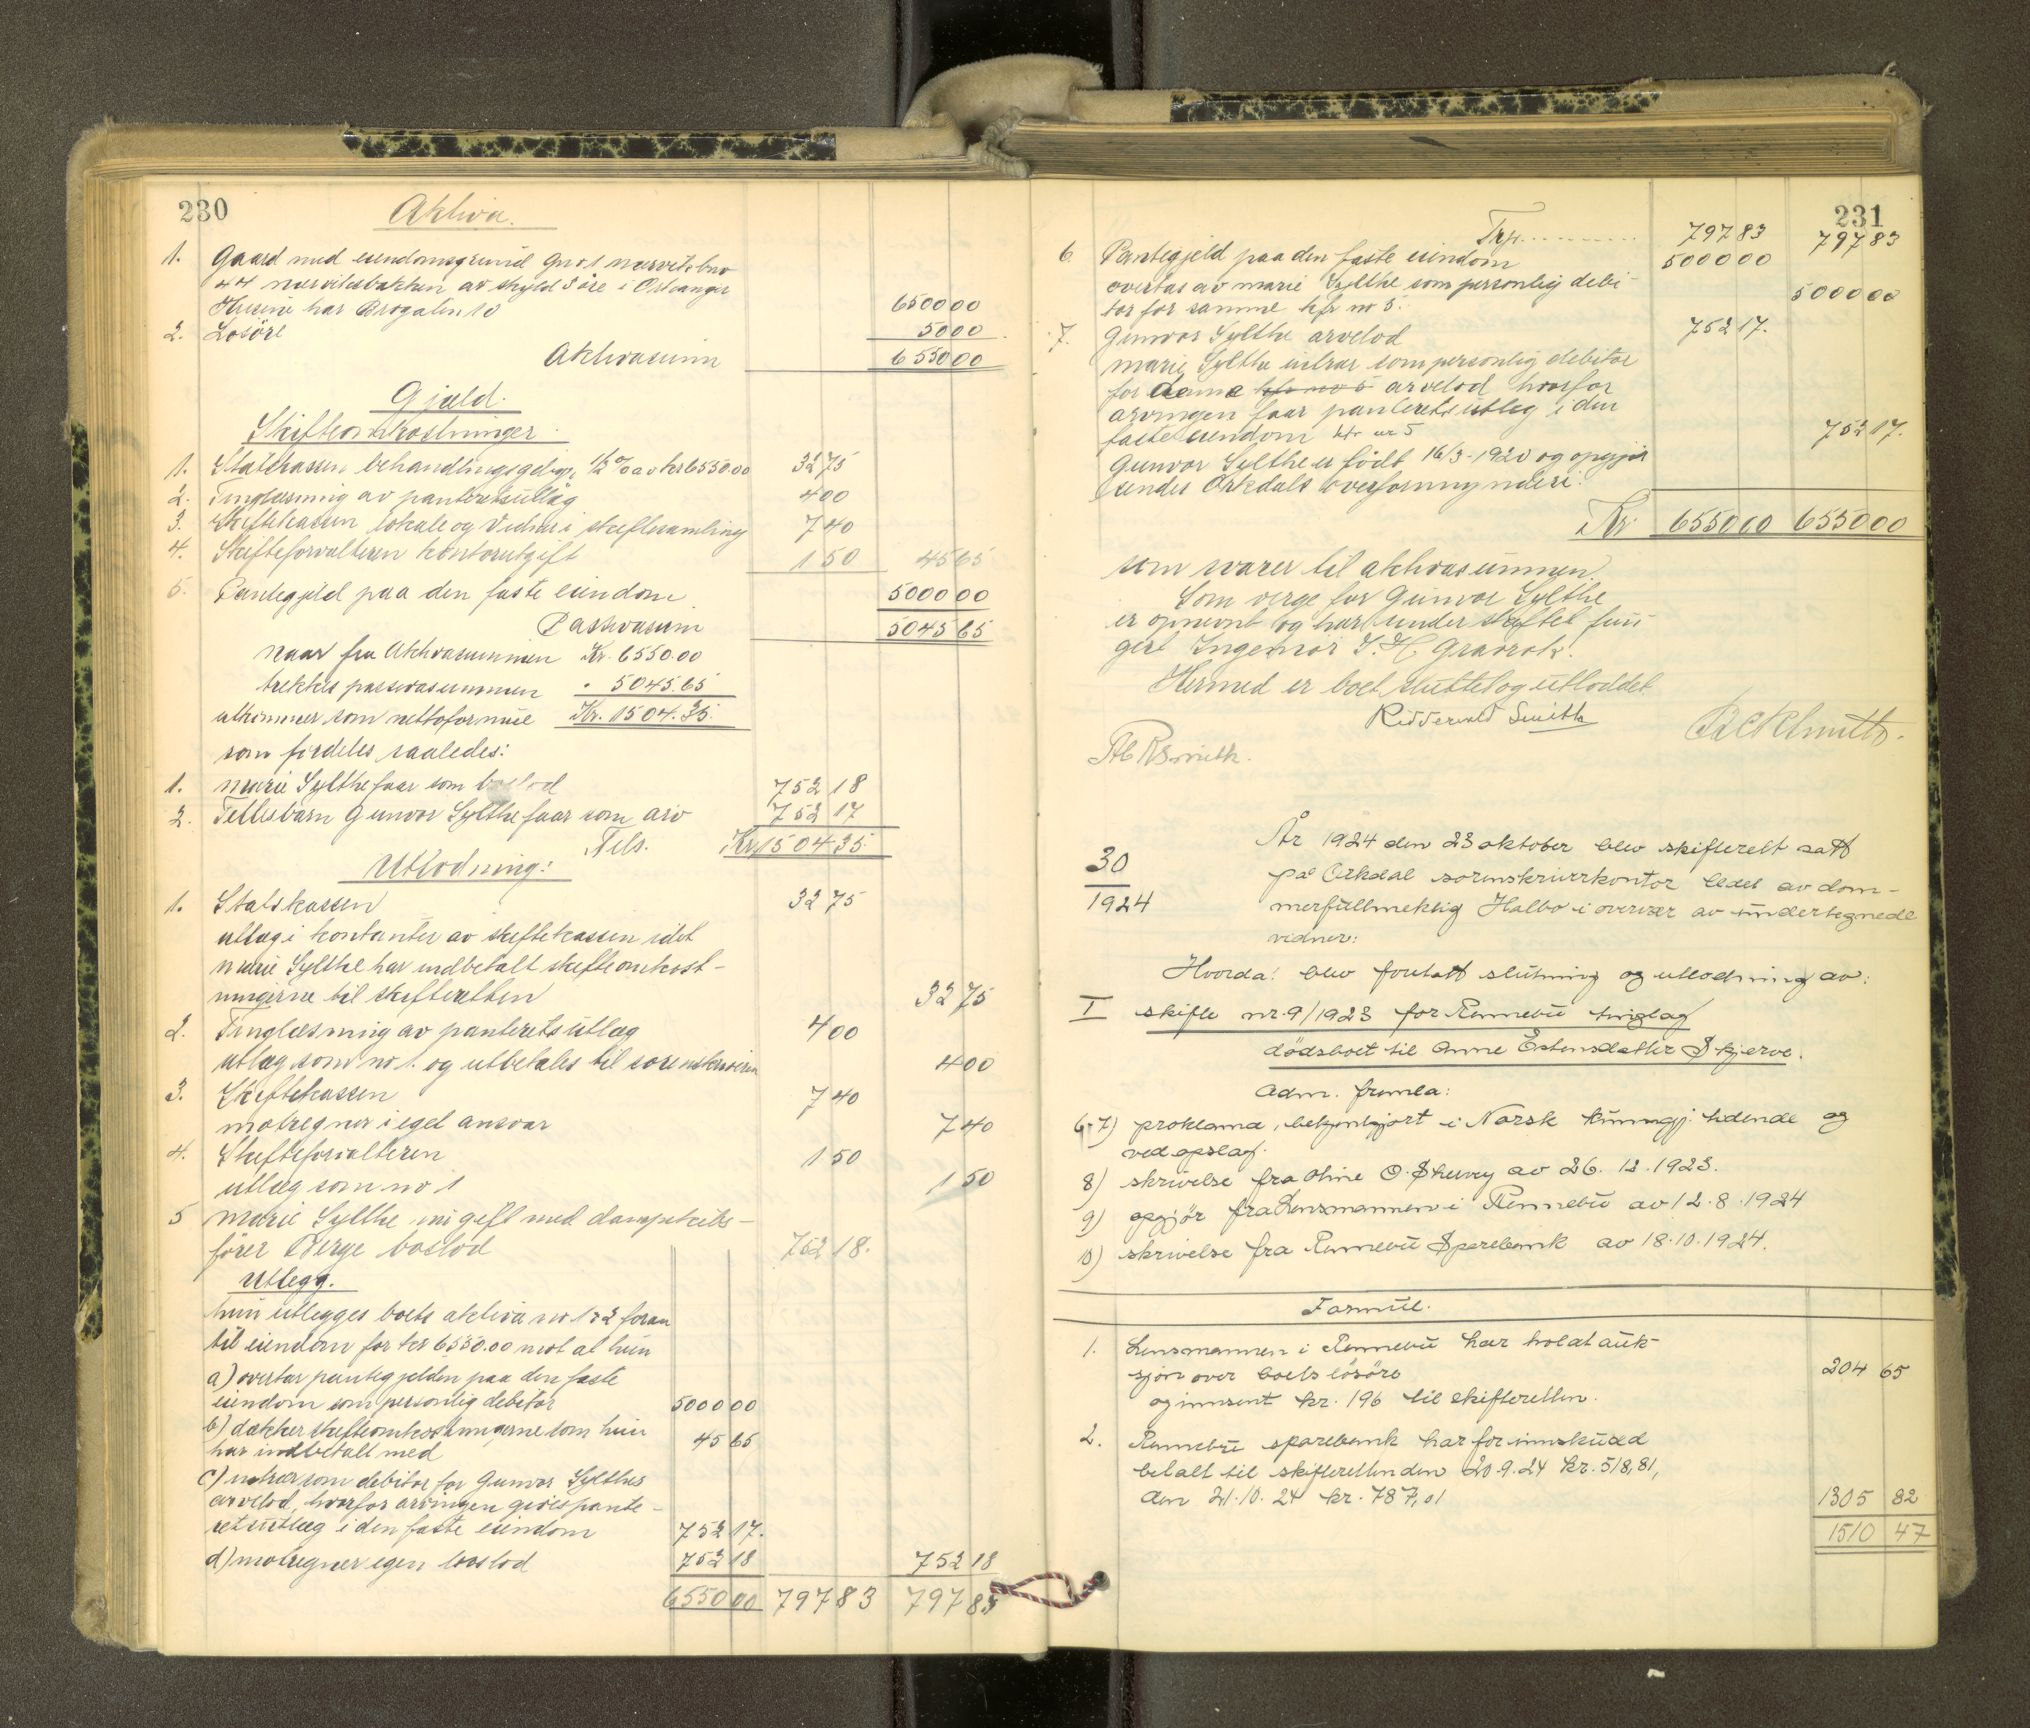 230
Aktiva.
1. Gaard med eiendomsgrund Gnr 1 nærvik bnr
44 nærviksbakken av skyld 3 øre i Orkanger
Husene har Brogaten 10 6500 00
2. Løsøre 50 00
Aktivasum 6550 00
Gjæld.
Skifteomkostninger.
1. Statskassen behandlingsgebyr, 1/2 % av kr 6550.00 32 75
2. Tinglæsning av panteretsutlæg 4 00
3. Skiftekassen lokale og vidner i skiftesamling 7 40
4. Skifteforvalteren kontorutgift 1 50 45 65
5. Pantegjeld paa den faste eiendom 5000 00
Passivasum 5045 65
Naar fra Aktivasummen Kr. 6550.00
trekkes passivasummen " 5045.65
utkommer som nettoformue Kr. 1504.35.
som fordeles saaledes:
1. Marie Sylthe faar som boslod 752 18
2. Fellesbarn Gunvor Sylthe faar som arv 752 17
Tils. Kr. 1504 35.
Utlodning:
1. Statskassen 32 75
utlæg i kontanter av skiftekassen idet
Marie Sylthe har indbetalt skifteomkost-
ningerne til skifteretten 32 75
2. Tinglæsning av panterets utlæg 4 00
utlæg som no 1. og utbetales til sorenskriveren 4 00
3. Skiftekassen 7 40
motregner i eget ansvar 7 40
4. Skifteforvalteren 1 50
utlæg som no 1 1 50
5 Marie Sylthe nu gift med dampskibs-
fører Berge boslod 752 18.
Utlegg.
hun utlegges boets aktiva no 1 & 2 foran
til eiendom for kr 6550.00 mot at hun
a) overtar pantegjelden paa den faste
eiendom som personlig debitor 5000 00
b) dækker skifteomkostningerne som hun
har indbetalt med 45 65
c) indtrær som debitor for Gunvor Sylthes
arvelod, hvorfor arvingen gives pante-
retsutlæg i den faste eiendom 752 17.
d) motregner egen boslod 752 18 752 18
6550 00 797 83 797 83
231
Trp. 797 83 797 83
6. Pantegjeld paa den faste eiendom 5000 00
overtas av Marie Sylthe som personlig debi-
tor for samme kfr no 5. 5000 00
7. Gunvor Sylthe arvelod 752 17.
Marie Sylthe intrær som personlig debitor
for denne kfr no 5 arvelod hvorfor
arvingen faar panterets utlæg i den
faste eiendom kfr nr 5 752 17.
Gunvor Sylthe er født 16/3-1920 og opgjør
sendes Orkdals overformynderi.
Kr. 6550 00 6550 00
som svarer til aktivasummen.
Som verge for Gunvor Sylthe
er opnevnt og har under skiftet fun-
gert Ingeniør J. H. Gravrok.
Hermed er boet sluttet og utloddet
Ridderwold Smith
R Smith.
30
1924
År 1924 den 23 oktober blev skifterett satt
på Orkdal sorenskriverkontor ledet av dom-
merfullmektig Halbo i overvær av undertegnede
vidner:
Hvorda: blev foretatt slutning og utlodning av:
I skifte nr. 9/1923 for Rennebu tinglag
dødsboet til Anne Estensdatter Skjerve.
Adm. fremla:
6-7) proklama, bekjentgjort i Norsk kunngj. tidende og
ved opslag.
8) skrivelse fra Oline O. Skuvy av 26. 12. 1923.
9) opgjør fra Lensmannen i Rennebu av 12. 8. 1924
10) skrivelse fra Rennebu Sparebank av 18. 10. 1924.
Formue.
1. Lensmannen i Rennebu har holdt auk-
sjon over boets løsøre 204 65
og innsent kr. 196 til skifteretten.
2. Rennebu sparebank har for innskudd
betalt til skifteretten den 20. 9. 24 kr. 518,81,
den 21. 10. 24 kr. 787,01 1305 82
1510 47